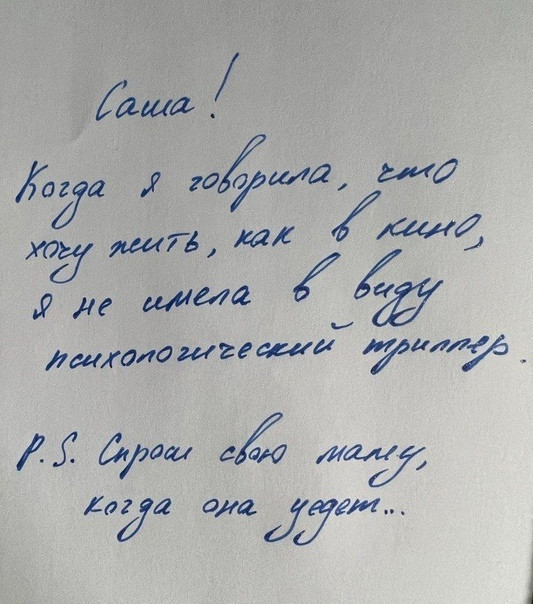 Саша!
Когда я говорила, что
хочу жить, как в кино,
я не имела в виду
психологический триллер.
P.S. Спроси свою маму,
когда она уедет...